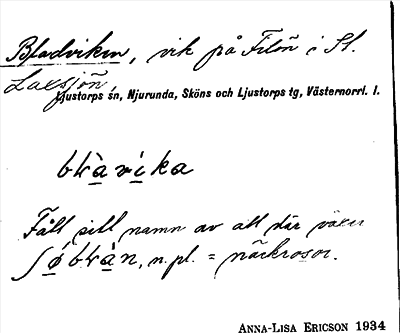 Bladviken, vik på Filön i St.
Laxsjön,
Ljustorps sn, Njurunda, Sköns och Ljustorps tg, Västernorrl. l.
blàvíka
Fått sitt namn av att där växer
n.pl. = näckrosor.
ANNA-LISA ERICSON 1934